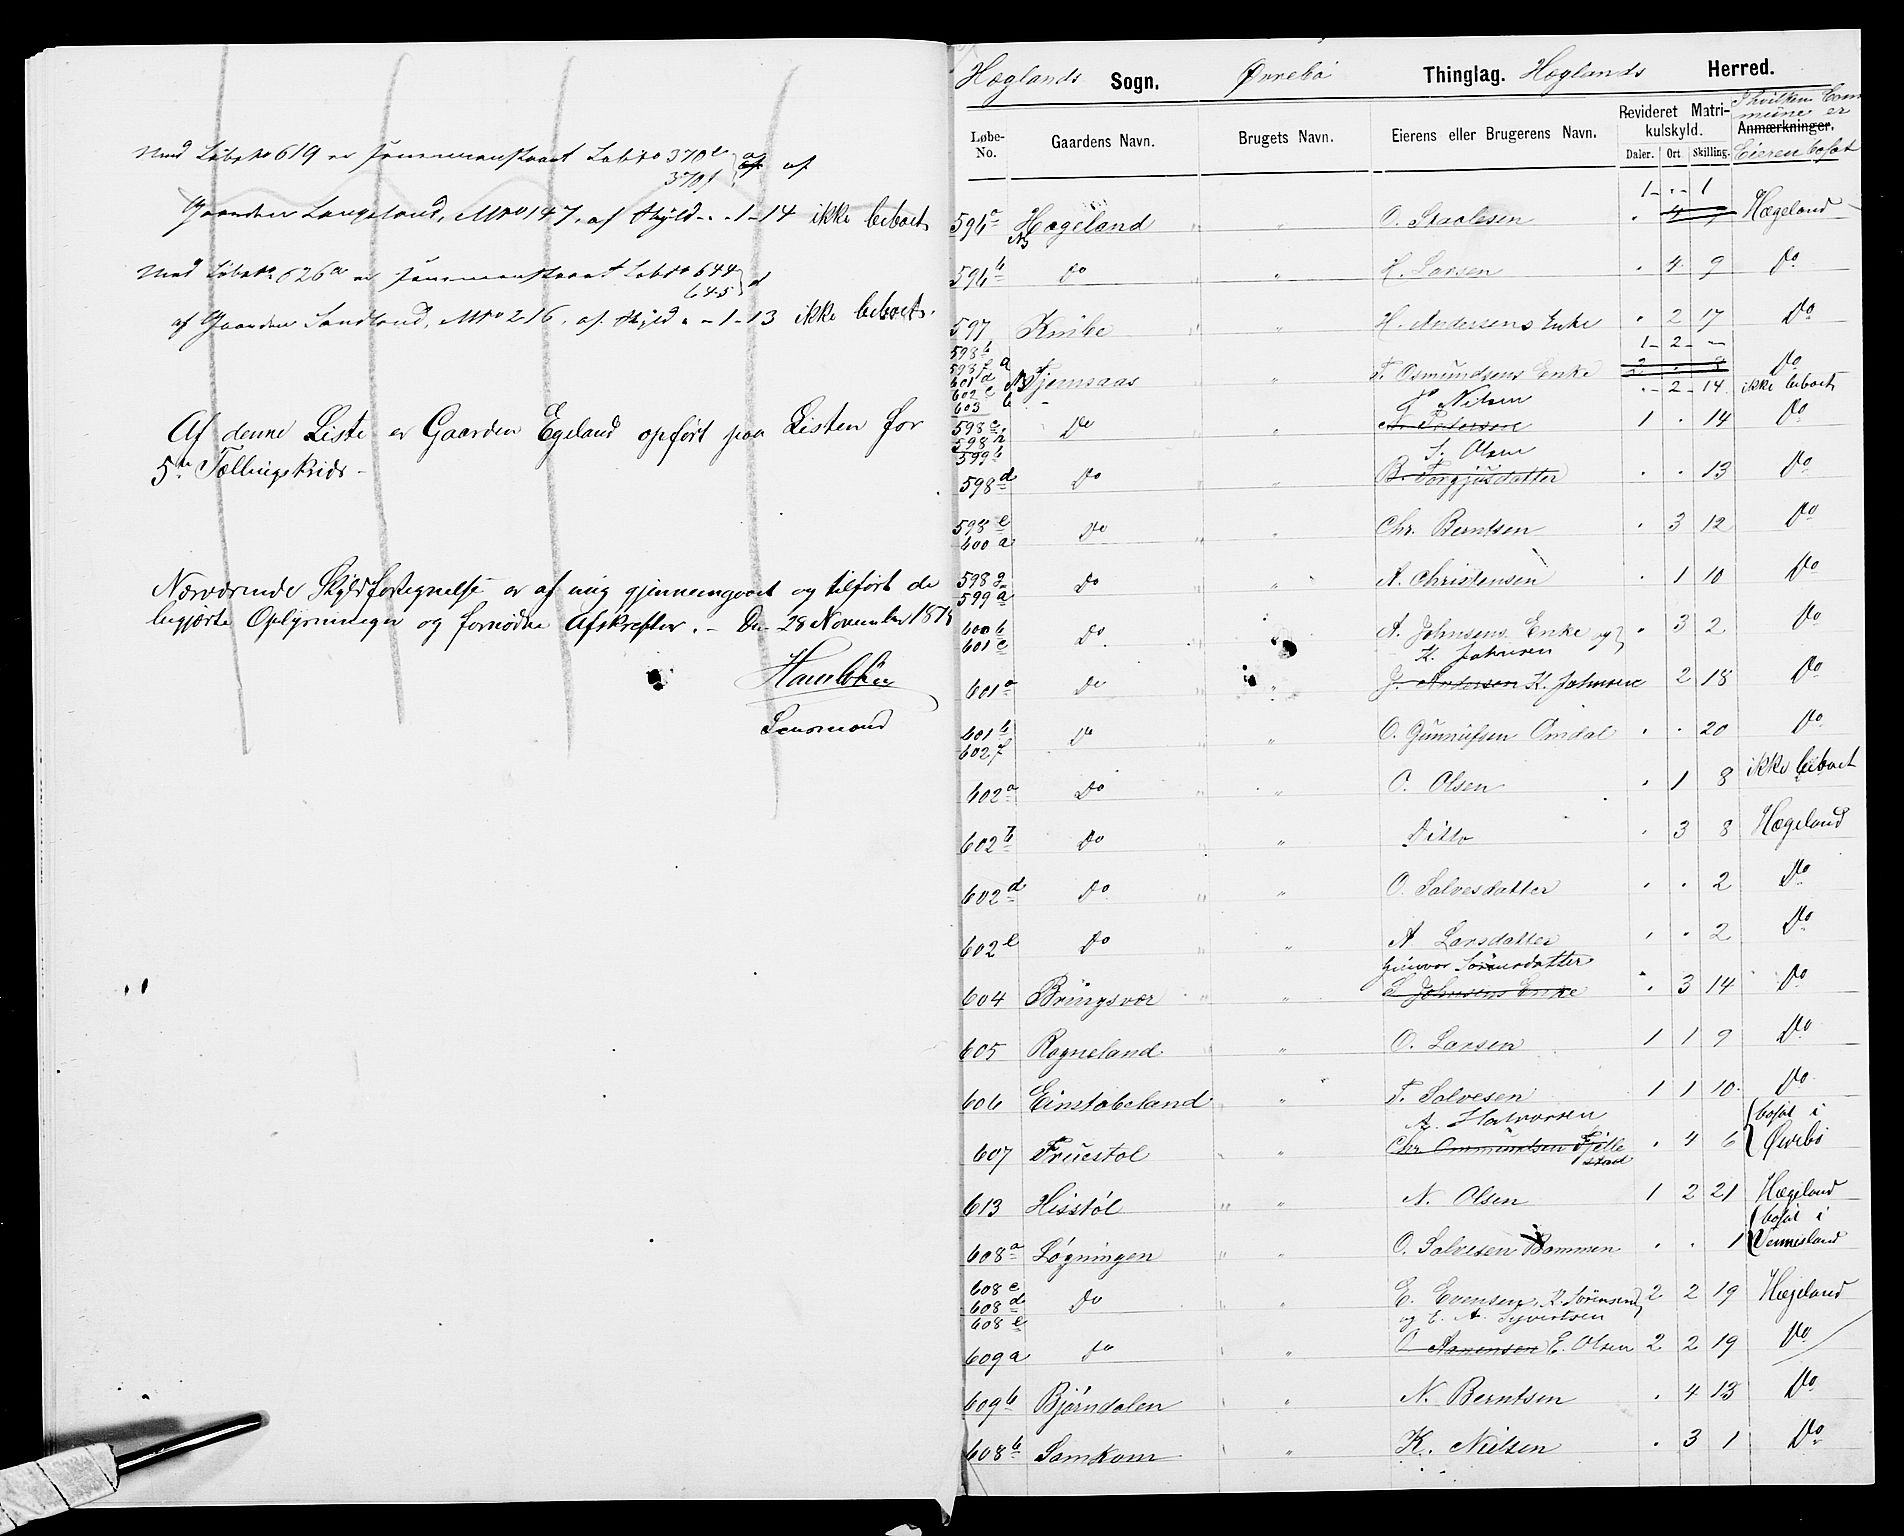 Med Løbeno 619 er sammenskreven Løbeno 370 e
370 f } af
Gaarden Langeland, Mno 147, af Skyld - . - 1 - 14 ikke beboet
Med Løbeno 626 a er Løbeno 644
645
af Gaarden Sandland, Mno 216, af Skyld . - 1 - 13 ikke beboet.
Af denne Liste er Gaarden Egeland opført paa Listen for
5te Tællingskrids -
Nærværende Skyldfortegnelse er af mig gjennemgaaet og tilført de
begjærte Oplysninger og fornødne Afskrefter. - Den 28 November 187
Lensmand
Hæglands Sogn. Øvrebø Thinglag. Hæglands Herred.
Løbe-No. Gaardens Navn. Brugets Navn. Eierens eller Brugerens Navn. Revideret Matrikulskyld. Daler. Ort Skilling. Anmærkninger. I hvilken Commune er Eieren bosat
1 - . - 1
596 a Hægeland " " O. Staalesen . 4 Hægeland
596 b Do " H. Larsen . 4 9 Do
597 Knibe " " H. Andersens Enke . 2 17 Do
1 - 2 - -
598 b 598 f 601 d 602 c 603 Tjomsaas " T. Osmundsens Enke 2 . 8 Do
. - 2 - 14 ikke beboet
Nilsen
598 c 598 h 599 b Do " Pedersen 1 . 14 Do
S. Olsen
598 d Do " " B. Torgjusdatter . . 13 Do
598 e 600 a Do " " Chr. Berntsen . 3 12 Do
598 g 599 a Do " " A. Christensen . 1 10 Do
600 b 601 c Do " A. Johnsens Enke og . 3 2 Do
K. Johnsen
601 a Do " J. Andersen K. Johnsen 2 18 Do
601 b 602 f Do " " O. Gunnufsen Omdal . . 20 Do
602 a Do " " O. Olsen . 1 8 ikke beboet
602 b Do " " Ditto . 3 8 Hægeland
602 d Do " " O. Salvesdatter . . 2 Do
602 e Do " " A Larsdatter . . 2 Do
Gunvor Sørensdatter
604 Bringsvær " " S. Johnsens Enke . 3 14 Do
605 Rogneland " " O. Larsen 1 1 9 Do
606 Einstabeland " " T. Salvesen 1 1 10 Do
A. Halvorsen
607 Fruestøl " " Chr. Ommundsen Fjellestad . 4 6 bosat i Øvrebø
613 Hisstøl " " N. Olsen 1 2 21 Hægeland
608 a Løgningen " " O. Salvesen Bommen . . 1 bosat i Vennesland
608 c 608 d 608 e Do " " E. Evensen, K. Sørensen 2 2 19 Hægeland
og E. A. Syvertsen
609 a Do " " O Aanensen E. Olsen 2 2 19 Do
609 b Bjørndalen " " N. Berntsen . 4 13 Do
608 b Samkom " " K. Nielsen . 3 1 Do